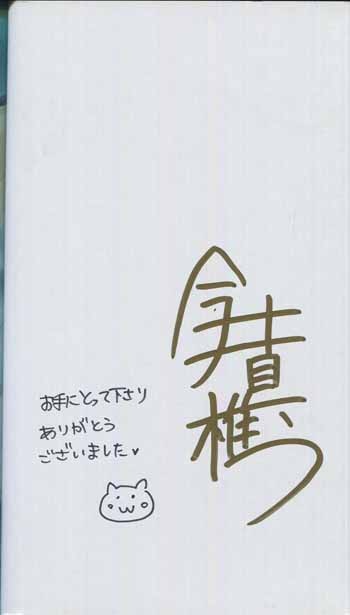 今井真椎
お手にとって下さり
ありがとう
ございました♥